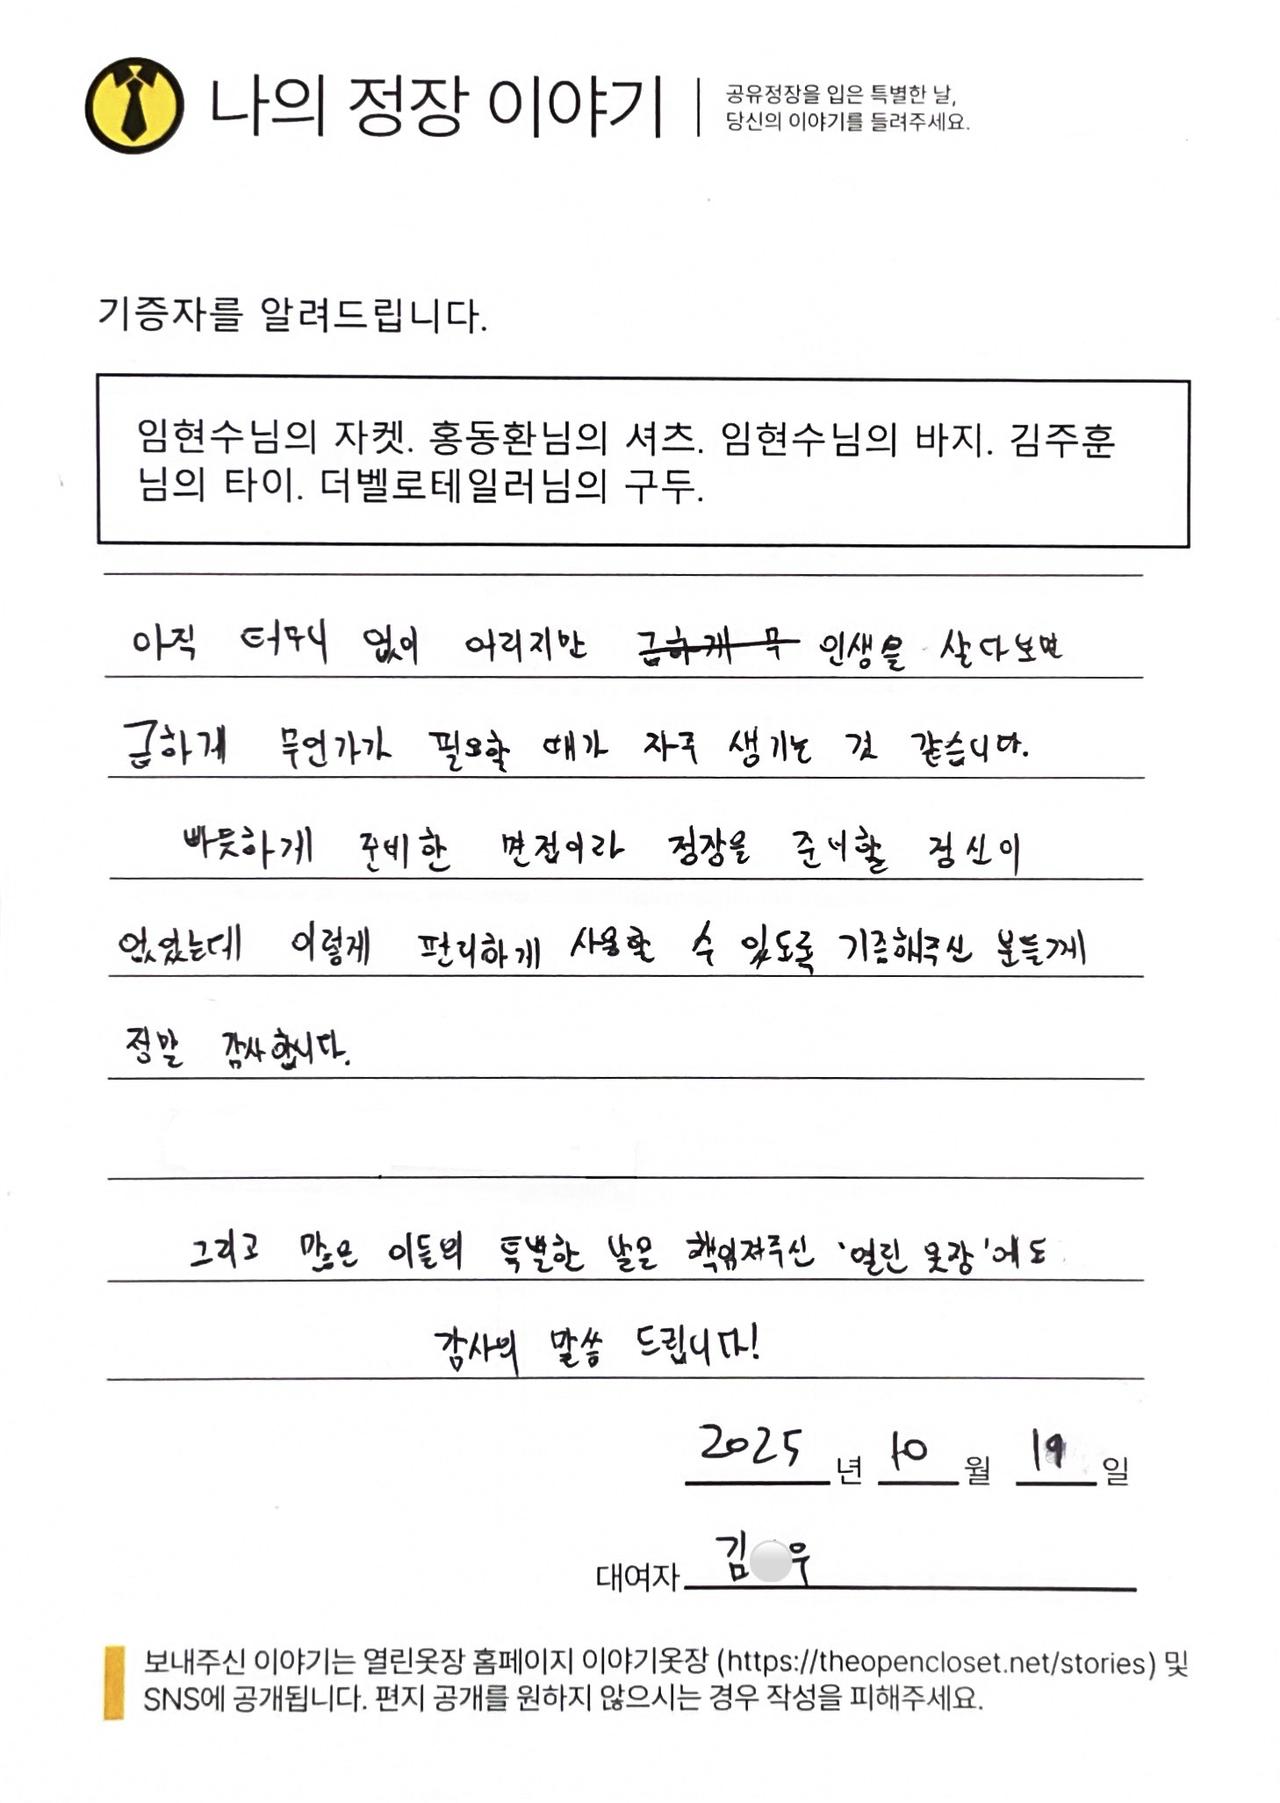 나의 정장 이야기
공유정장을 입은 특별한 날,
당신의 이야기를 들려주세요.
기증자를 알려드립니다.
임현수님의 자켓. 홍동환님의 셔츠. 임현수님의 바지. 김주훈
님의 타이. 더벨로테일러님의 구두.
아직 터무니 없이 어리지만 급하게 무 인생을 살다보면
급하게 무언가가 필요할 때가 자주 생기는 것 같습니다.
빠듯하게 준비한 면접이라 정장을 준비할 정신이
없었는데 이렇게 편리하게 사용할 수 있도록 기증해주신 분들께
정말 감사합니다.
그리고 많은 이들의 특별한 날을 책임져주신 '열린 옷장'에도
감사의 말씀 드립니다!
2025 년 10 월 19 일
대여자 김 우
보내주신 이야기는 열린옷장 홈페이지 이야기옷장 (https://theopencloset.net/stories) 및
SNS에 공개됩니다. 편지 공개를 원하지 않으시는 경우 작성을 피해주세요.